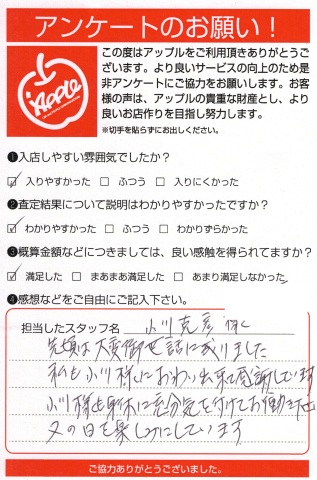 アンケートのお願い！
Apple
この度はアップルをご利用頂きありがとうご
ざいます。より良いサービスの向上のため是
非アンケートにご協力をお願いします。お客
様の声は、アップルの貴重な財産とし、より
良いお店作りを目指し努力します。
※切手を貼らずにお出しください。
❶入店しやすい雰囲気でしたか？
☑ 入りやすかった □ ふつう □ 入りにくかった
❷査定結果について説明はわかりやすかったですか？
☑ わかりやすかった □ ふつう □ わかりずらかった
❸概算金額などにつきましては、良い感触を得られてますか？
☑ 満足した □ まあまあ満足した □ あまり満足しなかった
❹感想などをご自由にご記入下さい。
担当したスタッフ名 小川克彦
先頃は大変御世話に成りました
私も小川様におあい出来て感謝しています
小川様も身体に充分気を付けてお働き下さ
又の日を楽しみにしています
ご協力ありがとうございました。